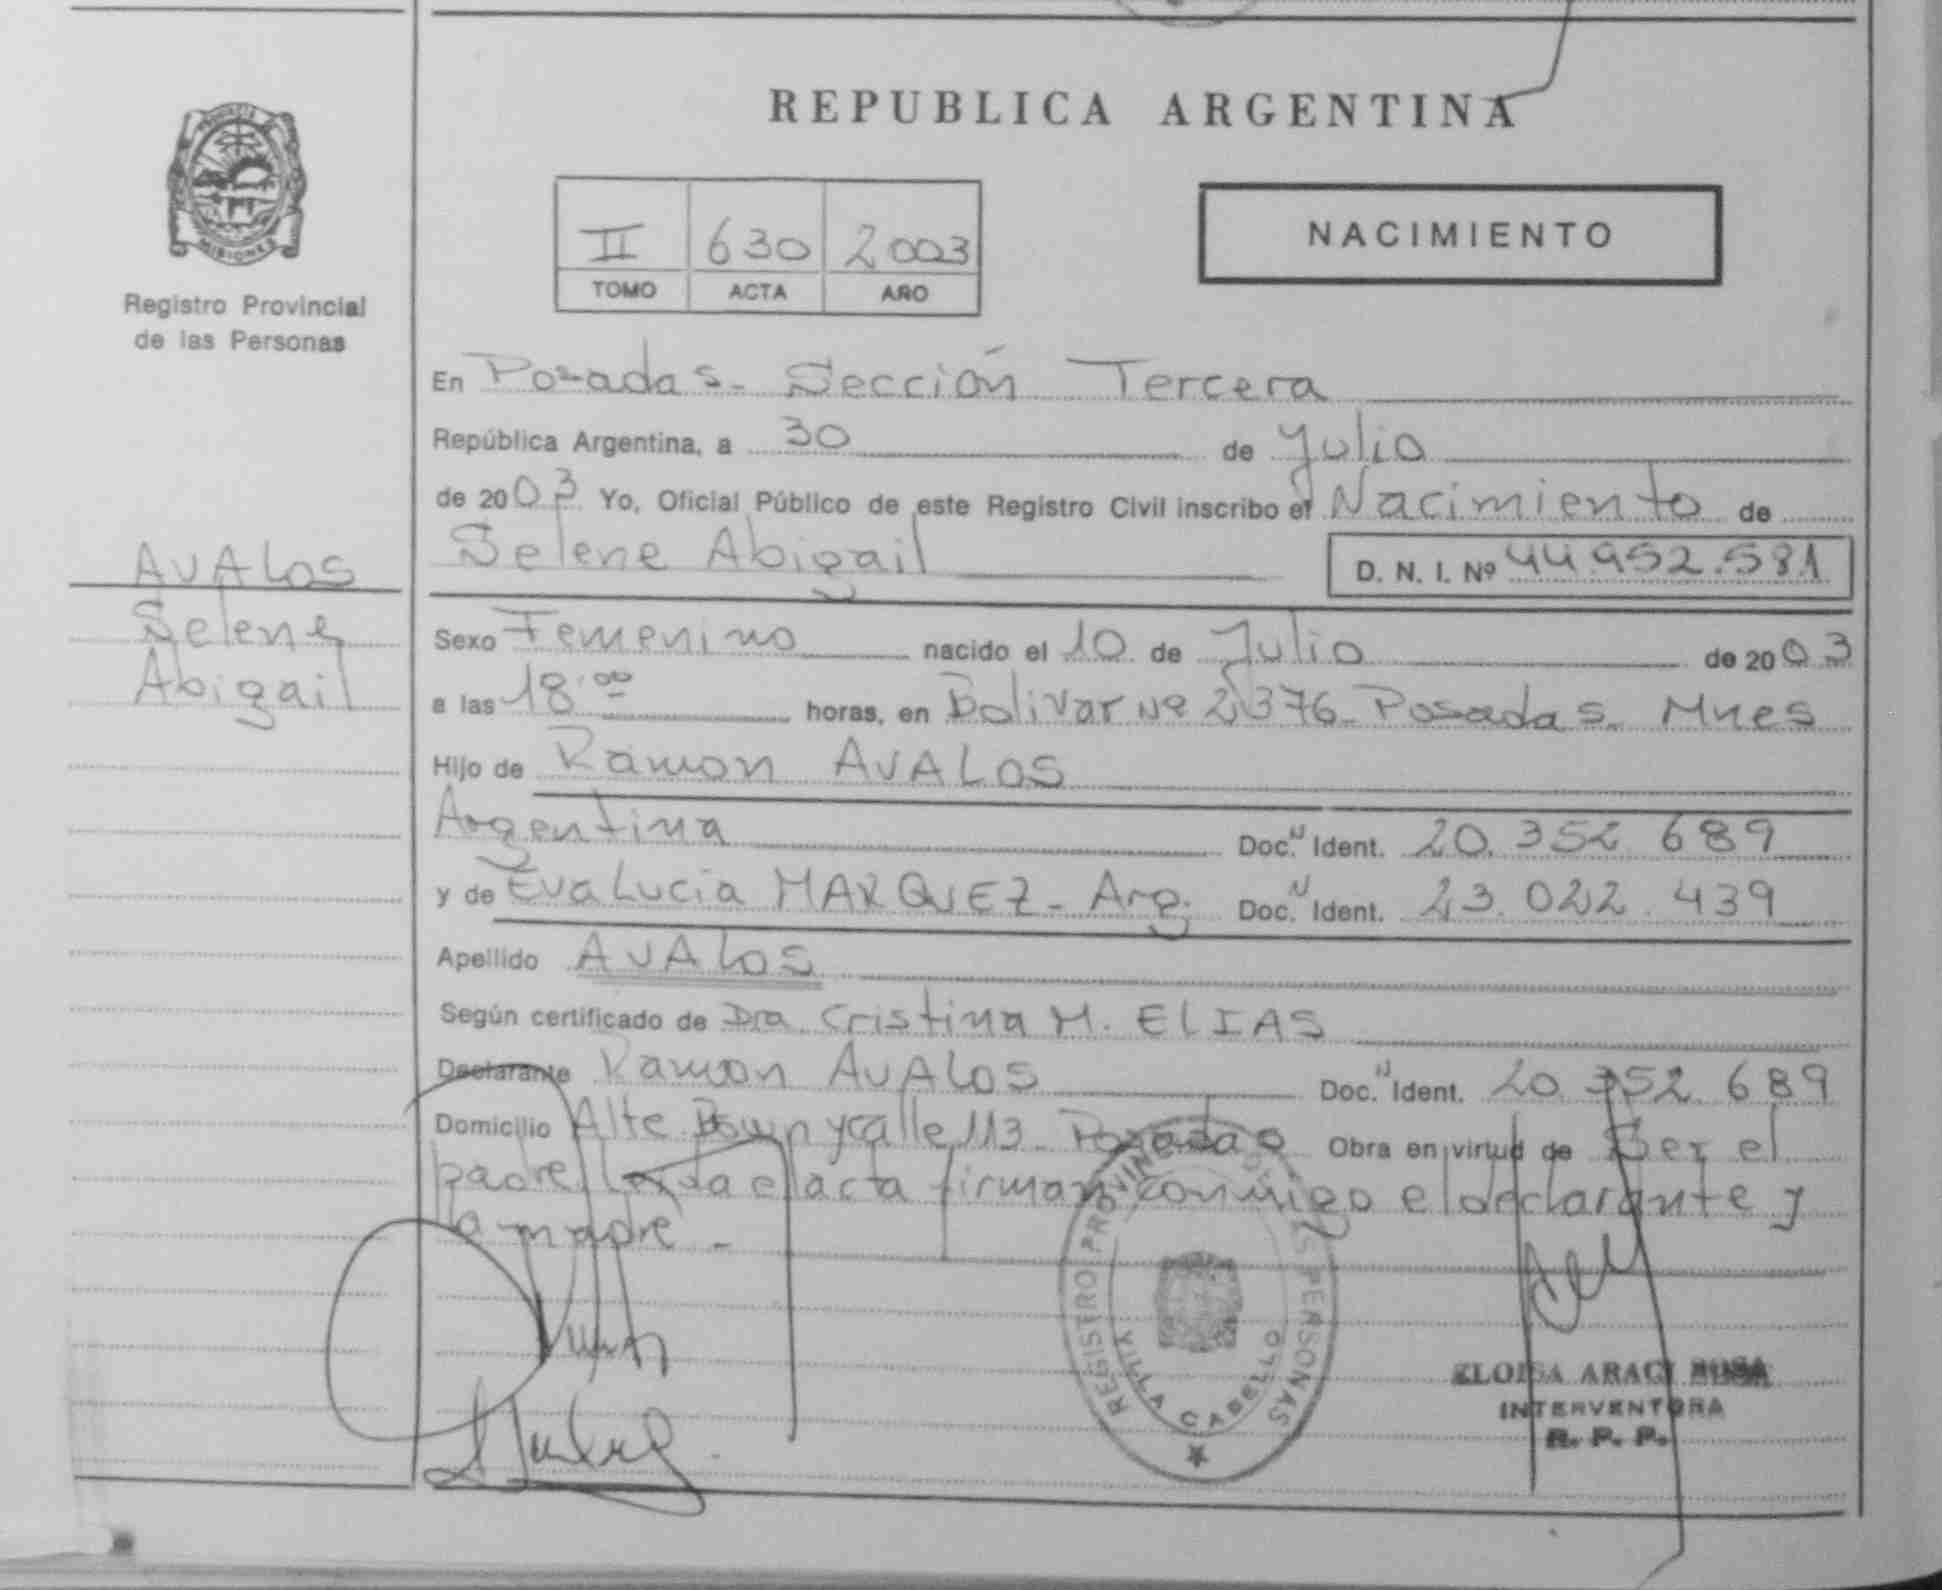 REPUBLICA ARGENTINA
PROVINCIA DE MISIONES
Registro Provincial
de las Personas
II 630 2003
TOMO ACTA AÑO
NACIMIENTO
AVALOS
Selene
Abigail
En Posadas - Sección Tercera
República Argentina, a 30 de Julio
de 2003 Yo, Oficial Público de este Registro Civil inscribo el Nacimiento de
Selene Abigail D. N. I. Nº 44.952.581
Sexo Femenino nacido el 10 de Julio de 2003
a las 18:00 horas, en Bolivar Nº 2376 - Posadas - Mnes
Hijo de Ramon AVALOS
Argentina Doc. N Ident. 20.352.689
y de Eva Lucia MARQUEZ - Arg. Doc. N Ident. 23.022.439
Apellido AVALOS
Según certificado de Dra. Cristina M. ELIAS
Declarante Ramon AVALOS Doc. N Ident. 20.352.689
Domicilio Alte Brown y calle 113 - Posadas Obra en virtud de Ser el
padre. Leída el acta firman conmigo el declarante y
la madre -
REGISTRO PROVINCIAL DE LAS PERSONAS
VILLA CABELLO
ELOISA ARACI
INTERVENTORA
R. P. P.